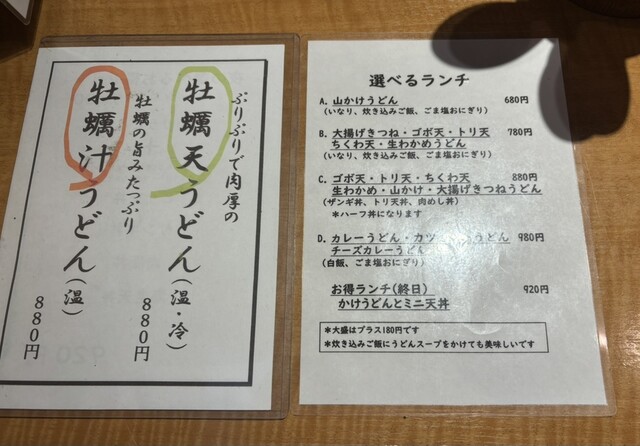 ぷりぷりで肉厚の
牡蠣天うどん(温・冷)
880円
牡蠣の旨みたっぷり
牡蠣汁うどん(温)
880円
選べるランチ
A. 山かけうどん 680円
(いなり、炊き込みご飯、ごま塩おにぎり)
B. 大揚げきつね・ゴボ天・トリ天 780円
ちくわ天・生わかめうどん
(いなり、炊き込みご飯、ごま塩おにぎり)
C. ゴボ天・トリ天・ちくわ天 880円
生わかめ・山かけ・大揚げきつねうどん
(ザンギ丼、トリ天丼、肉めし丼)
*ハーフ丼になります
D. カレーうどん・カツ うどん 980円
チーズカレーうどん
(白飯、ごま塩おにぎり)
お得ランチ(終日) 920円
かけうどんとミニ天丼
*大盛はプラス180円です
*炊き込みご飯にうどんスープをかけても美味しいです